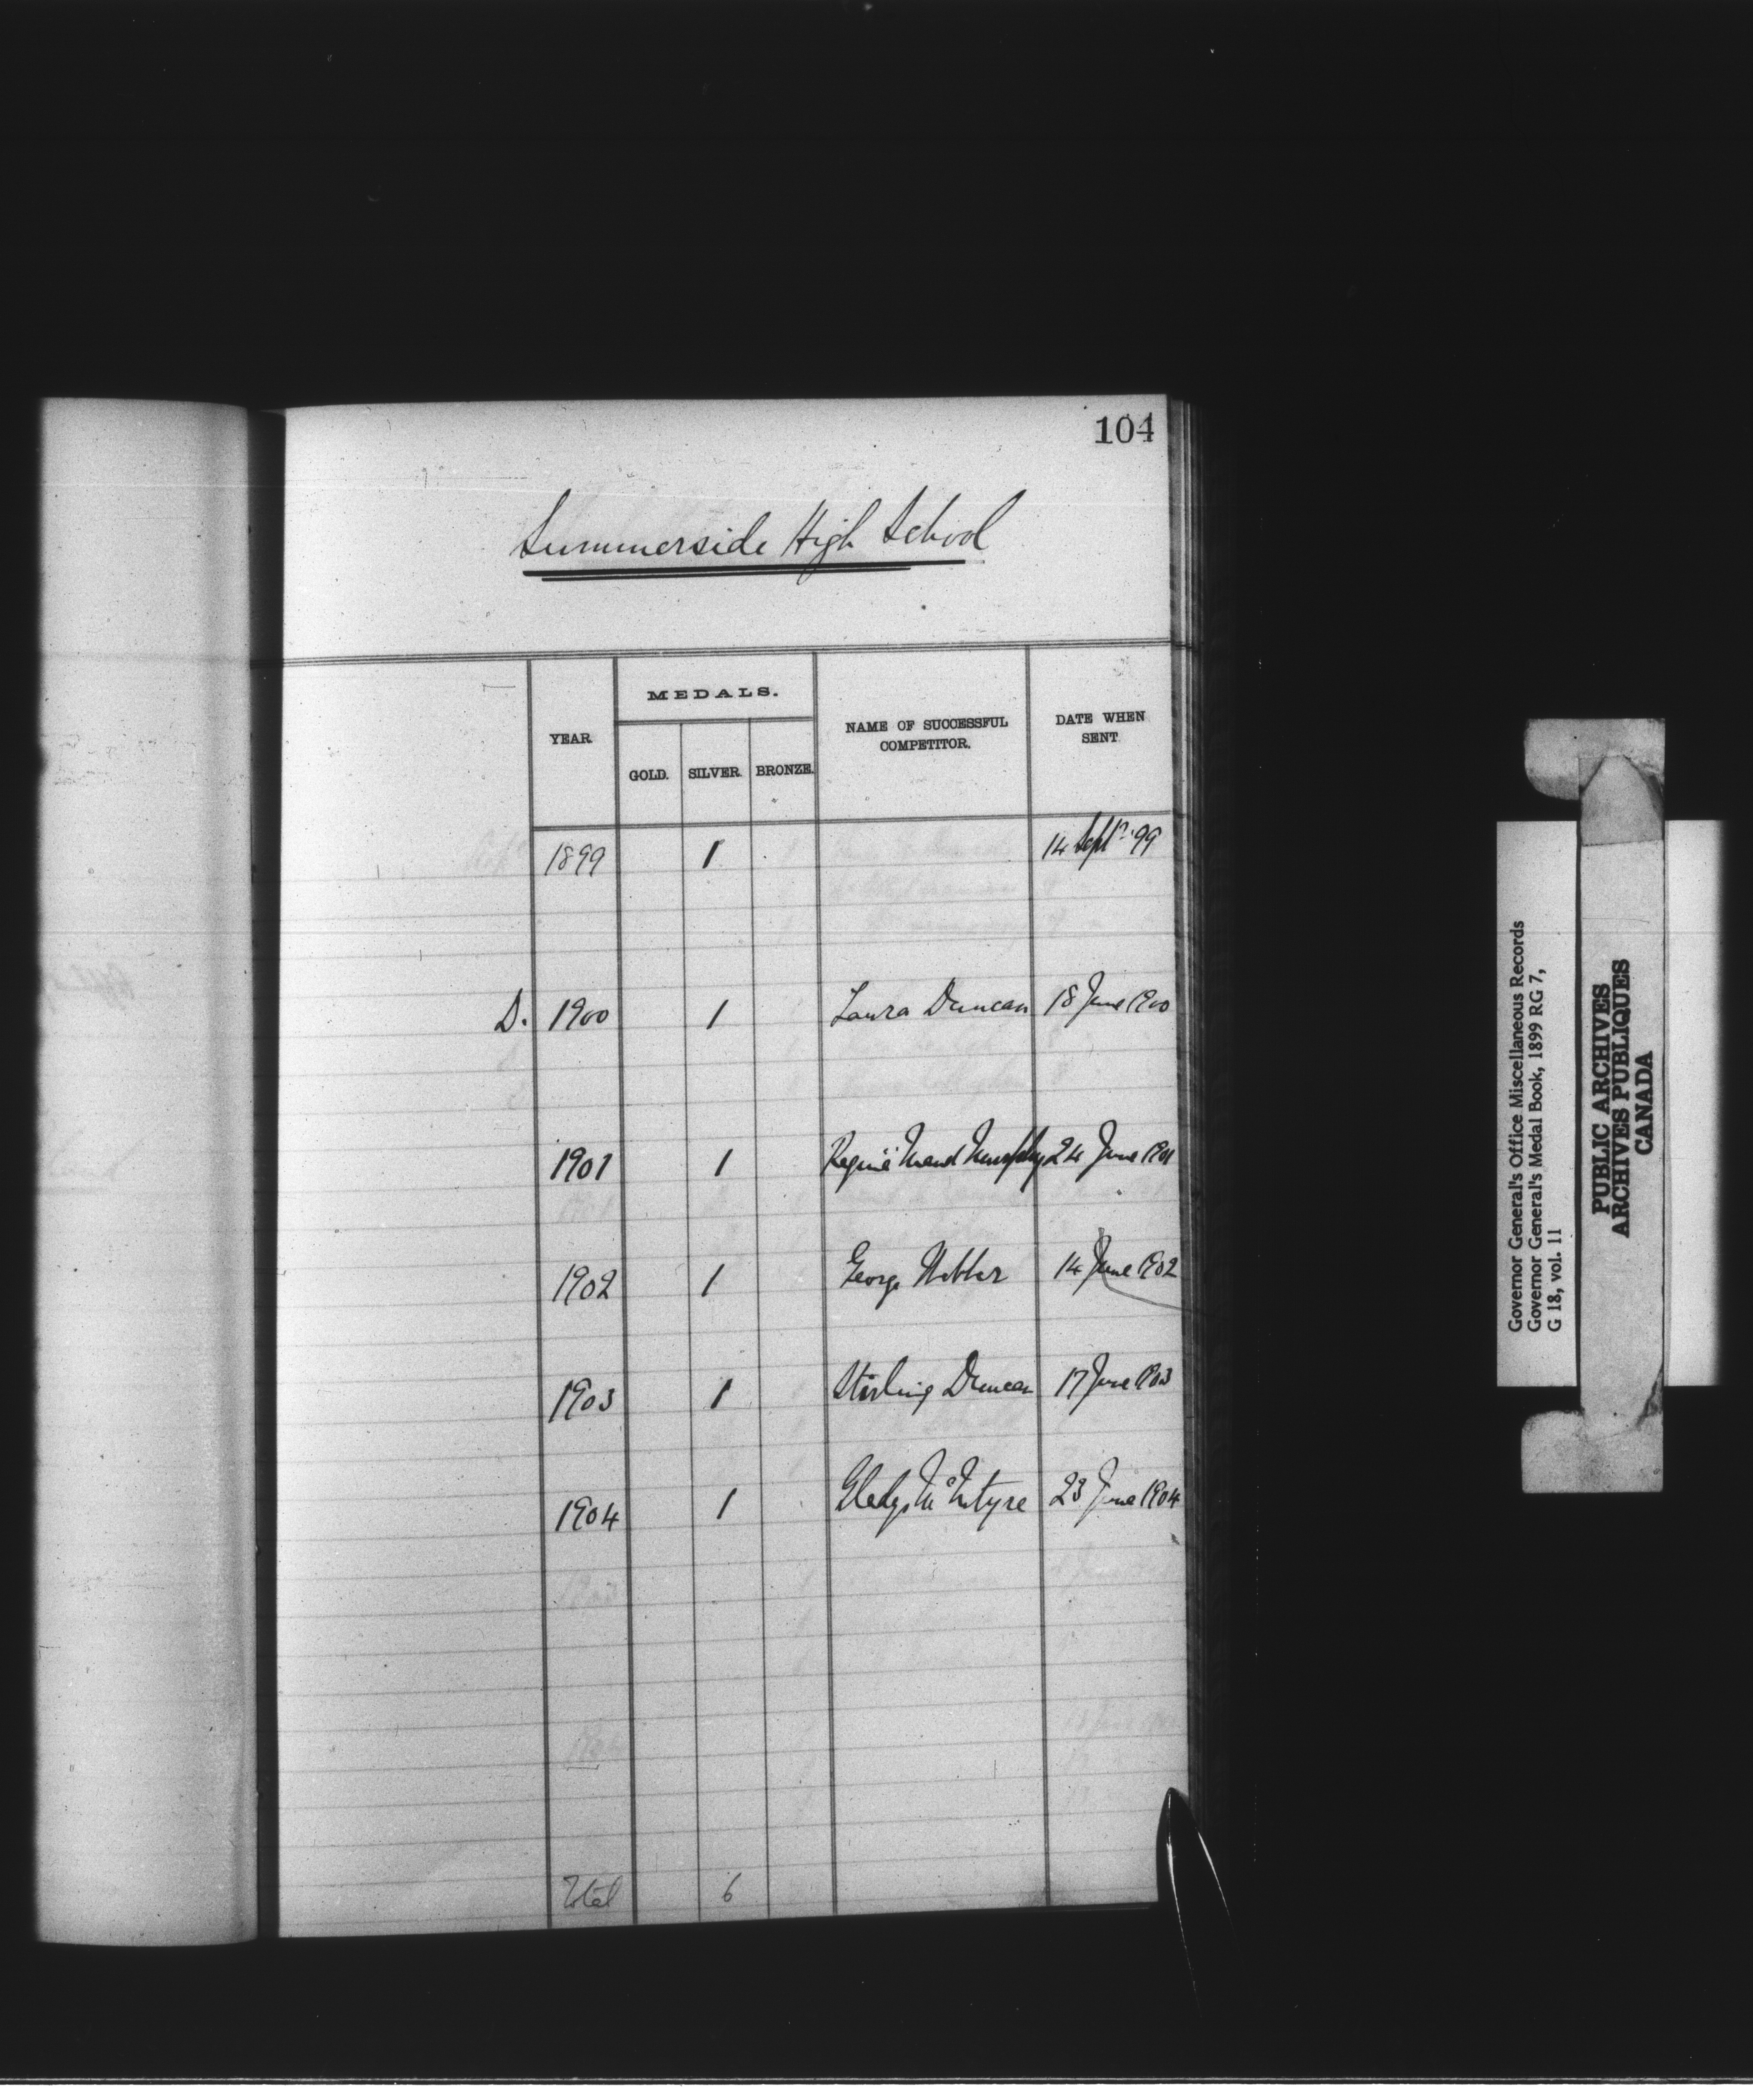 104
Summerside High School
YEAR
MEDALS.
GOLD. SILVER. BRONZE.
NAME OF SUCCESSFUL
COMPETITOR.
DATE WHEN
SENT
1899 1 14 Sept. '99
D. 1900 1 Laura Duncan 18 June 1900
1901 1 Maud Murphy 24 June 1901
1902 1 George 14 June 1902
1903 1 Stirling Duncan 17 June 1903
1904 1 Gladys McIntyre 23 June 1904
Total 6
Governor General's Office Miscellaneous Records
Governor General's Medal Book, 1899 RG 7,
G 18, vol. 11
PUBLIC ARCHIVES
ARCHIVES PUBLIQUES
CANADA